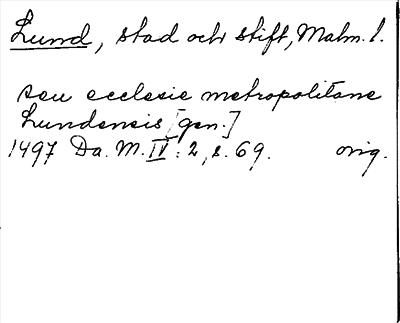 Lund, stad och stift, Malm. l.
seu ecclesie metropolitane
Lundensis [gen.]
1497 Da. M. IV: 2, s. 69. orig.